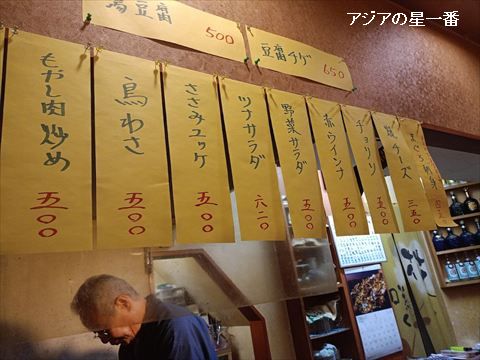 アジアの星一番
湯豆腐
500
豆腐チゲ
650
もやし肉炒め
五〇〇
鳥わさ
五〇〇
ささみユッケ
五〇〇
ツナサラダ
六二〇
野菜サラダ
五〇〇
赤ウインナ
五〇〇
チョリソ
五〇〇
チーズ
三五〇